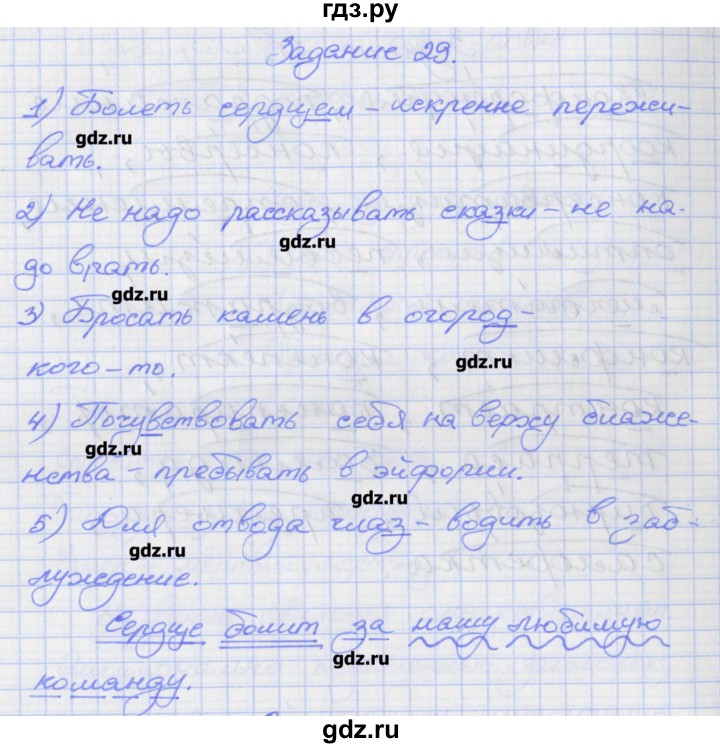 гдз.ру
Задание 29.
1) Болеть сердцем – искренне пережи-
gdz.ru
вать.
2) Не надо рассказывать сказки – не на-
gdz.ru
до врать.
gdz.ru
3) Бросать камень в огород –
кого-то.
gdz.ru
4) Почувствовать себя на верху блаже-
gdz.ru
нства – пребывать в эйфории.
gdz.ru
5) Для отвода глаз – водить в заб-
gdz.ru
луждение.
Сердце болит за нашу любимую
gdz.ru
команду.
gdz.ru